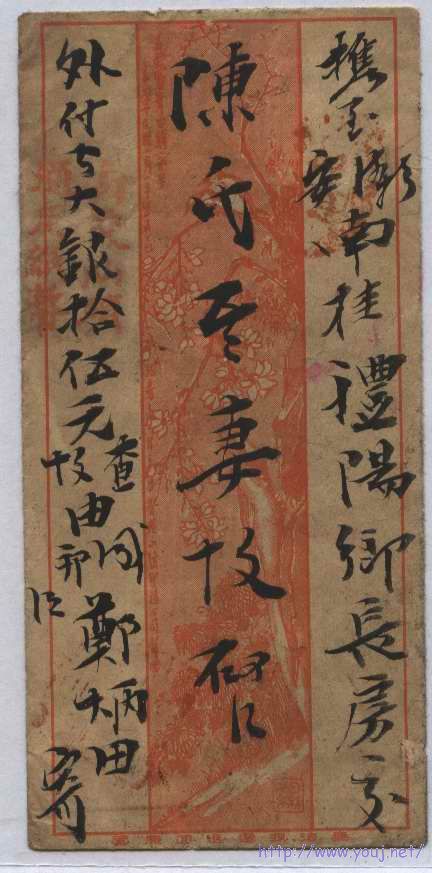 携至潮安南桂禮陽鄉長房交
陳氏吾妻收啓
外付去大銀拾伍元查收由
鄭炳田
寄
http://www.youj.net/